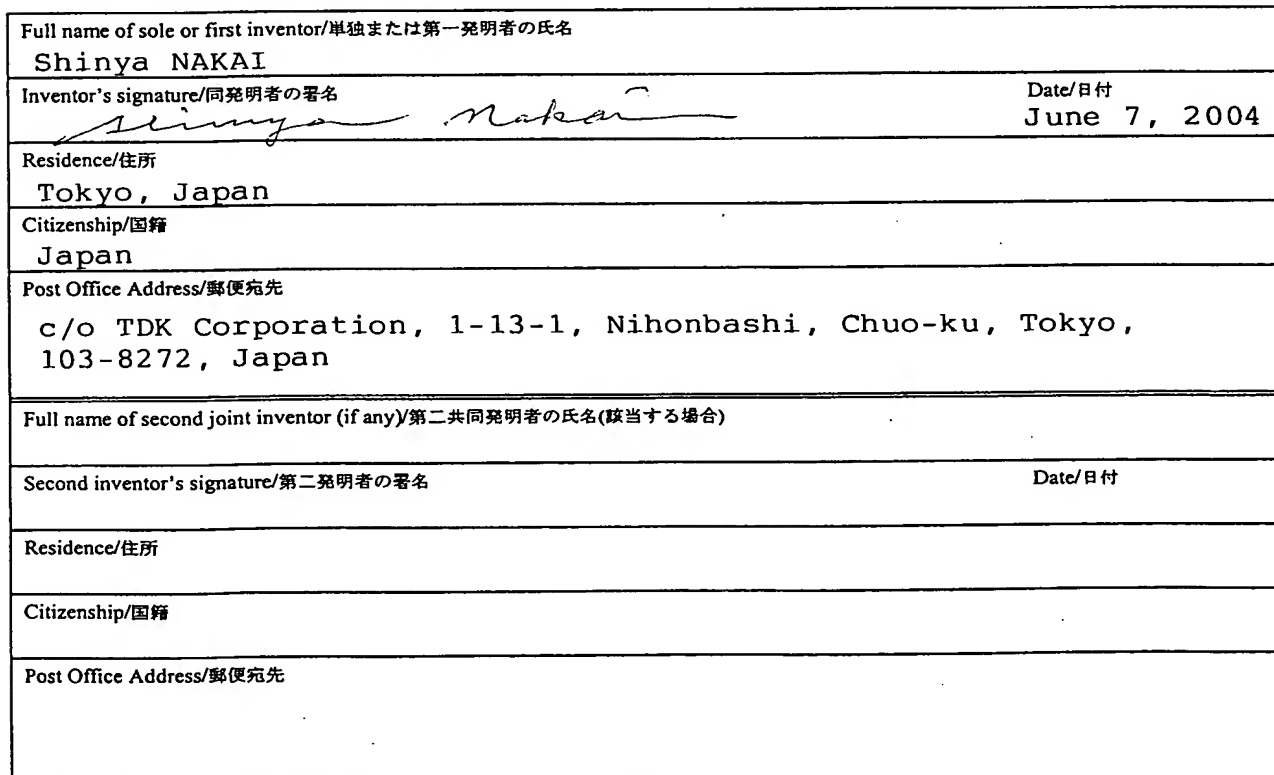 Full name of sole or first inventor/単独または第一発明者の氏名
Shinya NAKAI
Inventor's signature/同発明者の署名
Date/日付
Shinya Nakai
June 7, 2004
Residence/住所
Tokyo, Japan
Citizenship/国籍
Japan
Post Office Address/郵便宛先
c/o TDK Corporation, 1-13-1, Nihonbashi, Chuo-ku, Tokyo,
103-8272, Japan
Full name of second joint inventor (if any)/第二共同発明者の氏名(該当する場合)
Second inventor's signature/第二発明者の署名
Date/日付
Residence/住所
Citizenship/国籍
Post Office Address/郵便宛先